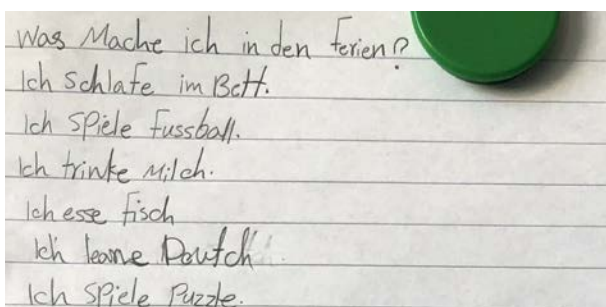 Was Mache ich in den Ferien?
Ich Schlafe im Bett.
Ich Spiele Fussball.
Ich trinke Milch.
Ich esse fisch
Ich leane Doutch
Ich Spiele Puzzle.